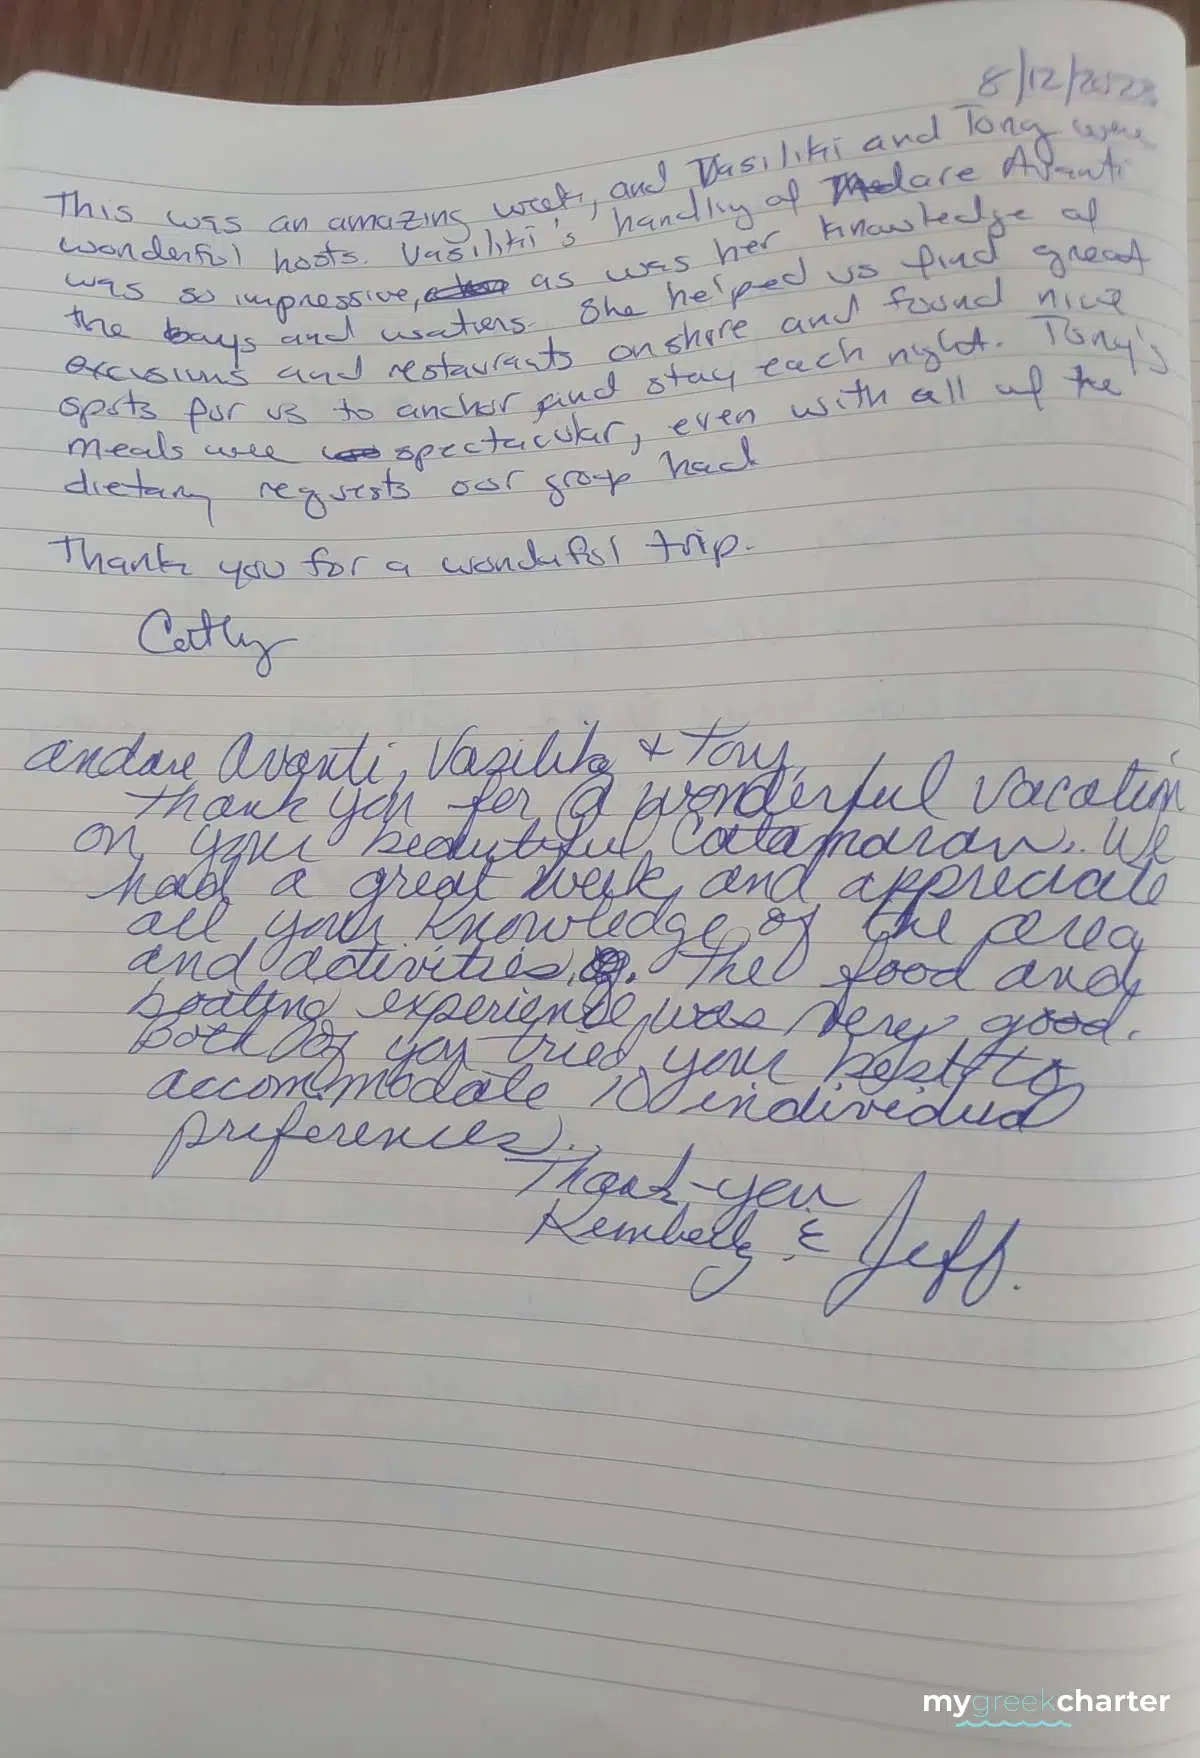 8/12/2023
This was an amazing week, and Vasiliki and Tony were
wonderful hosts. Vasiliki's handling of Andare Avanti
was so impressive, as was her knowledge of
the bays and waters. She helped us find great
excusions and restaurants on shore and found nice
spots for us to anchor and stay each night. Tony's
meals were spectacular, even with all of the
dietary requests our group had
Thank you for a wonderful trip.
Cathy
Andare Avanti, Vasilika & Tony,
Thank you for a wonderful vacation
on your beautiful Catamaran. We
had a great week, and appreciate
all your knowledge of the area
and activities. The food and
boating experience was very good.
Both of you tried your best to
accommodate 10 individual
preferences.
Thank-you
Kimberly & Jeff.
mygreekcharter